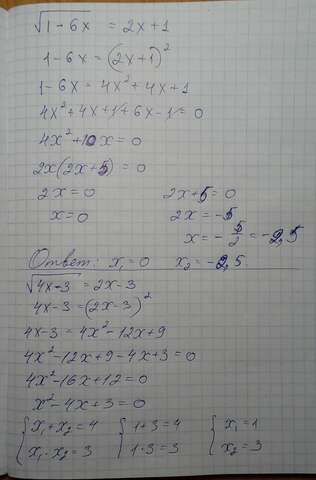 √1-6x = 2x+1
1-6x = (2x+1)²
1-6x = 4x²+4x+1
4x²+4x+1+6x-1=0
4x²+10x=0
2x(2x+5)=0
2x=0 2x+5=0
x=0 2x=-5
x=-5/2=-2,5
Ответ: x₁=0 x₂=-2,5
√4x-3 = 2x-3
4x-3 = (2x-3)²
4x-3 = 4x²-12x+9
4x²-12x+9-4x+3=0
4x²-16x+12=0
x²-4x+3=0
{ x₁+x₂=4 { 1+3=4 { x₁=1
{ x₁·x₂=3 { 1·3=3 { x₂=3